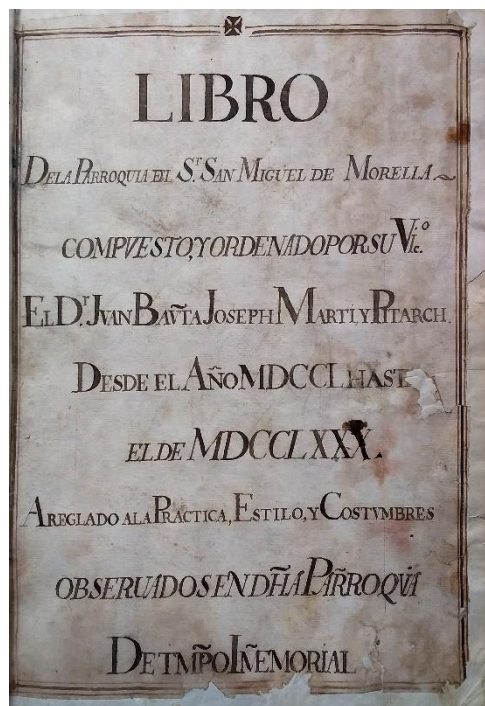 LIBRO
DE LA PARROQUIA DEL S.r SAN MIGUEL DE MORELLA
COMPVESTO, Y ORDENADO POR SU Vic.o
EL D.r JVAN BAVT̃A JOSEPH MARTI, Y PITARCH.
DESDE EL AÑO MDCCL HAST
EL DE MDCCLXXX.
AREGLADO A LA PRACTICA, ESTILO, Y COSTVMBRES
OBSERUADOS EN DH̃A PAR̃ROQVIA
DE TMP̃O IÑEMORIAL